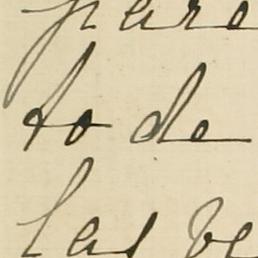 para
to de
las ve